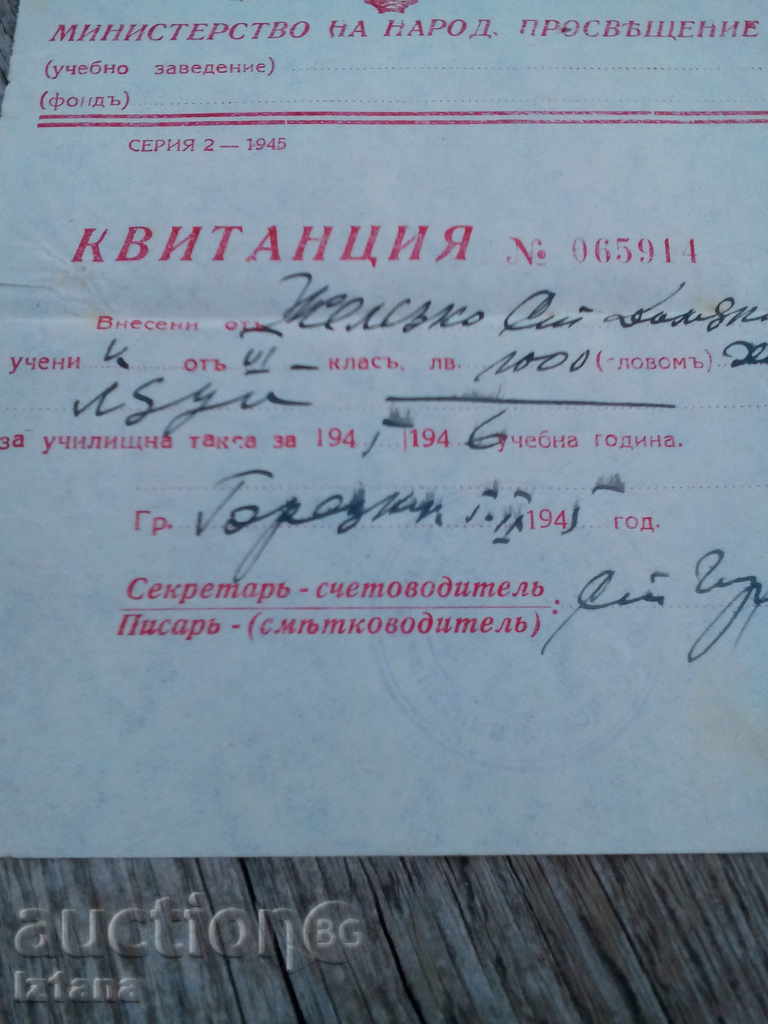 МИНИСТЕРСТВО НА НАРОД. ПРОСВѢЩЕНИЕ
(учебно заведение)
(фондъ)
СЕРИЯ 2 — 1945
КВИТАНЦИЯ № 065914
Внесени отъ Желѣзко Ст.
учени к отъ VI — класъ, лв. 1000 (-ловомъ)
за училищна такса за 1945 194 6 учебна година.
Гр. 1945 год.
Секретарь - счетоводитель
Писарь - (смѣтководитель) : Ст
auction BG
Iztana